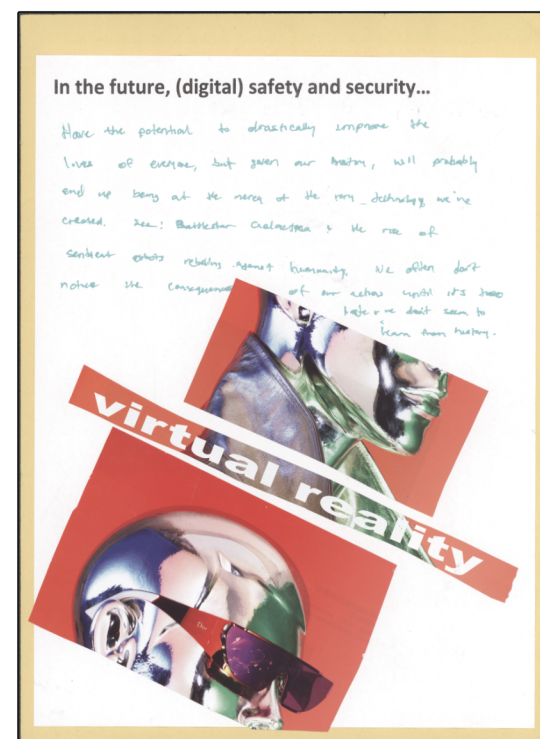 In the future, (digital) safety and security...
Have the potential to drastically improve the
lives of everyone, but given our history, will probably
end up being at the mercy of the very technology we've
created. See: Battlestar Galactica & the rise of
sentient robots rebelling against humanity. We often don't
notice the consequences of our actions until it's too
late & we don't seem to
learn from history.
virtual reality
Dior